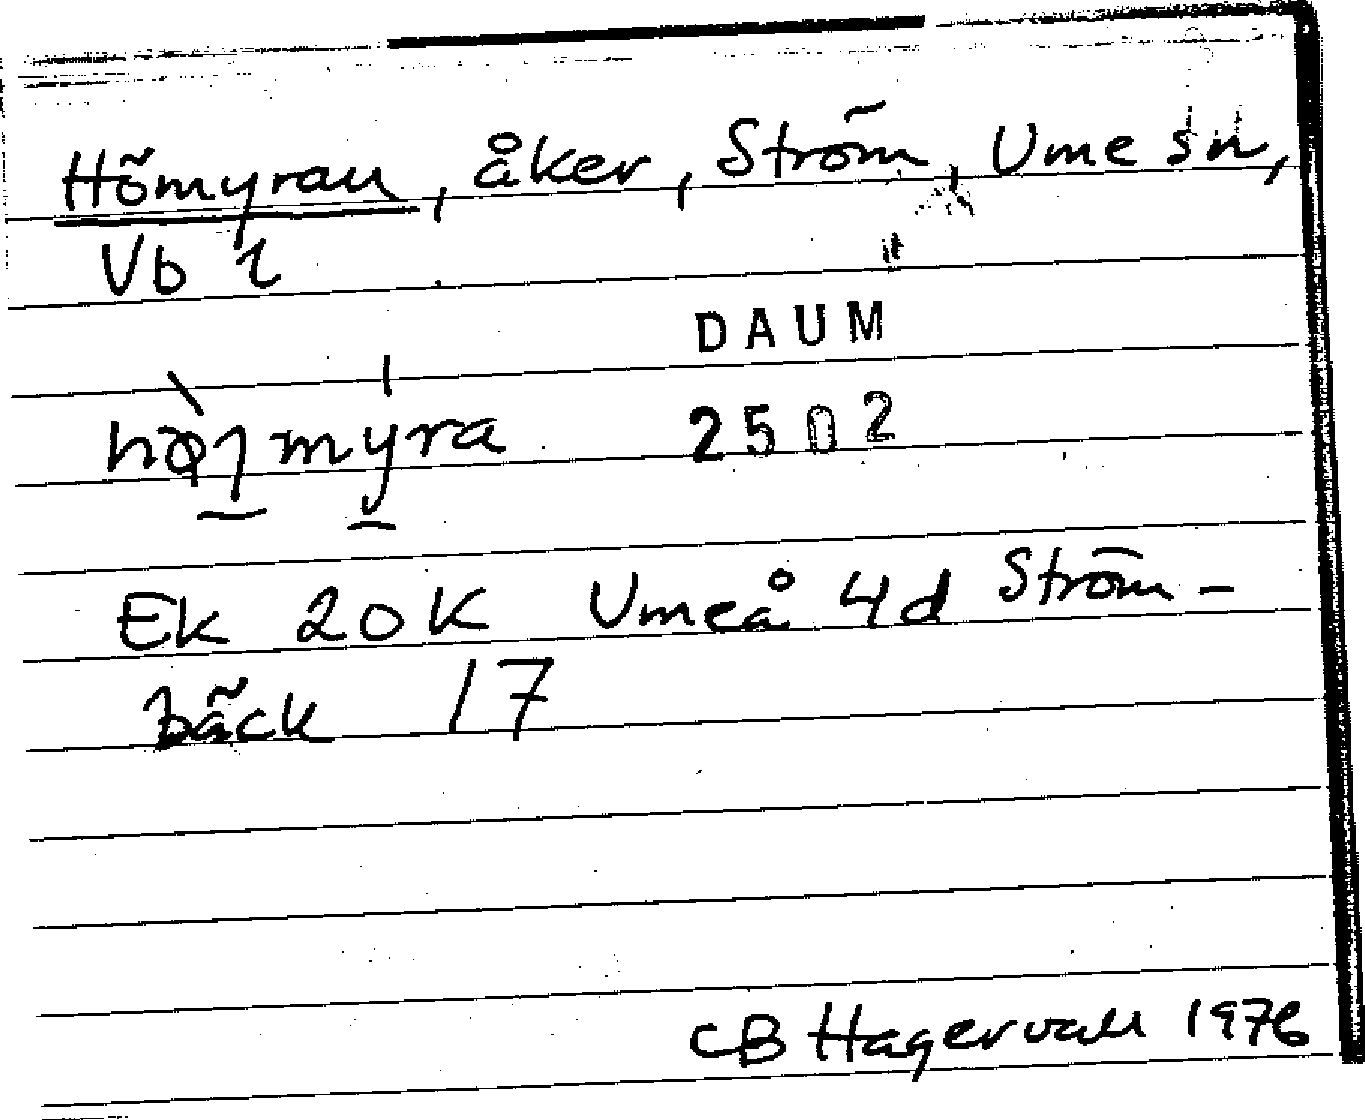 Hömyran, åker, Ström, Ume sn,
Vb l
DAUM
2502
Ek 20K Umeå 4d Ström-
bäck 17
CB Hagervall 1976